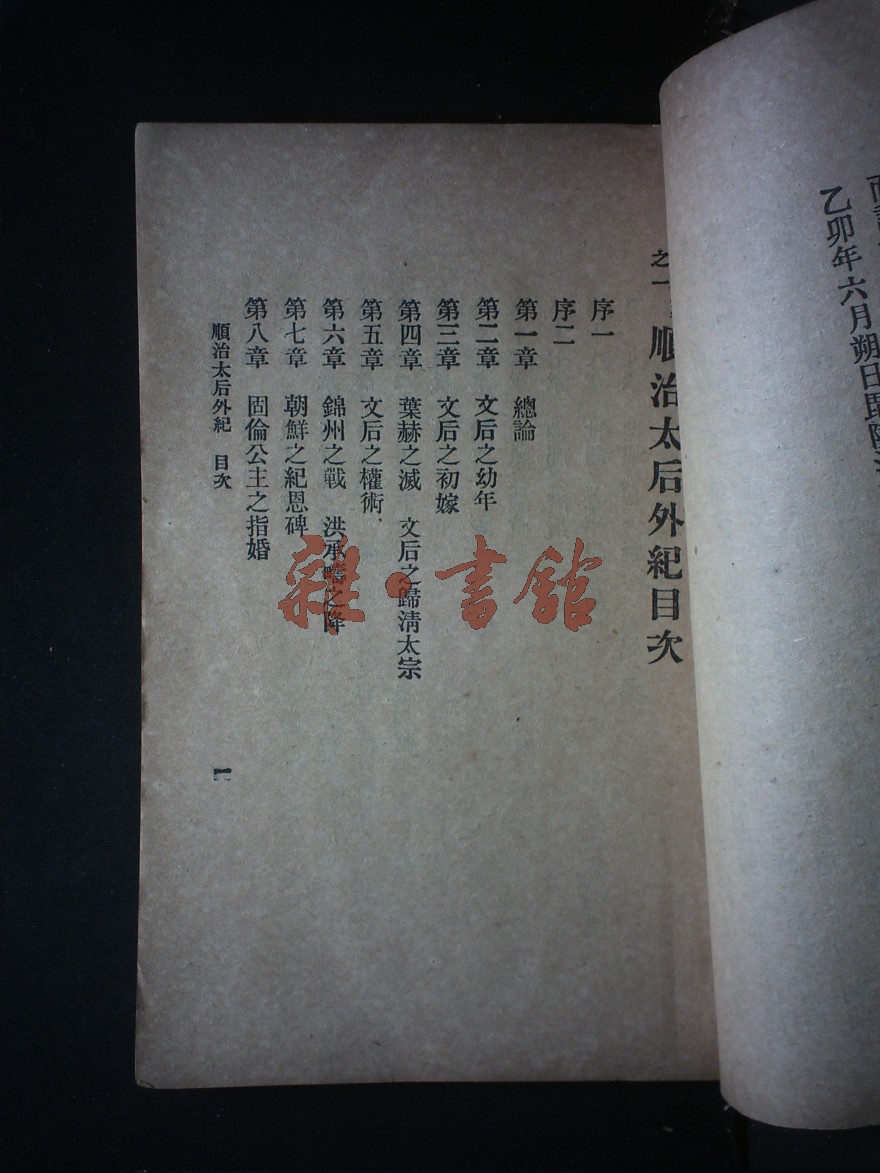 乙卯年六月朔日
之一
順治太后外紀目次
序一
序二
第一章 總論
第二章 文后之幼年
第三章 文后之初嫁
第四章 葉赫之滅 文后之歸清太宗
第五章 文后之權術
第六章 錦州之戰 洪承疇之降
第七章 朝鮮之紀恩碑
第八章 固倫公主之指婚
順治太后外紀 目次
一
雜·書館